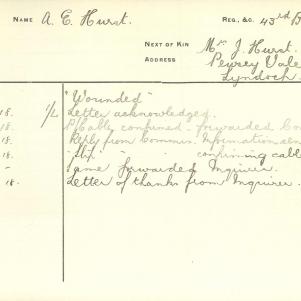 NAME A. E. Hurst. REG., &C. 43rd B
NEXT OF KIN Mr J. Hurst.
ADDRESS Pewsey Vale
Lyndoch
"Wounded"
18. 1/L Letter acknowledged.
18. P/Cably confirmed. Forwarded Co
18. Reply from Commis. Information
18. confirming cable
- Same forwarded Inquirer.
18. Letter of thanks from Inquirer.